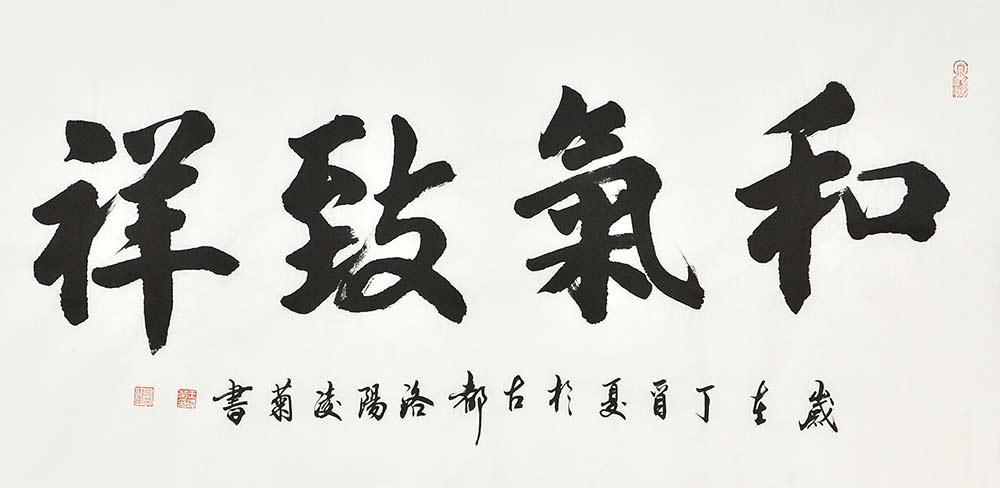 和氣致祥
歲在丁酉夏於古都洛陽凌菊書